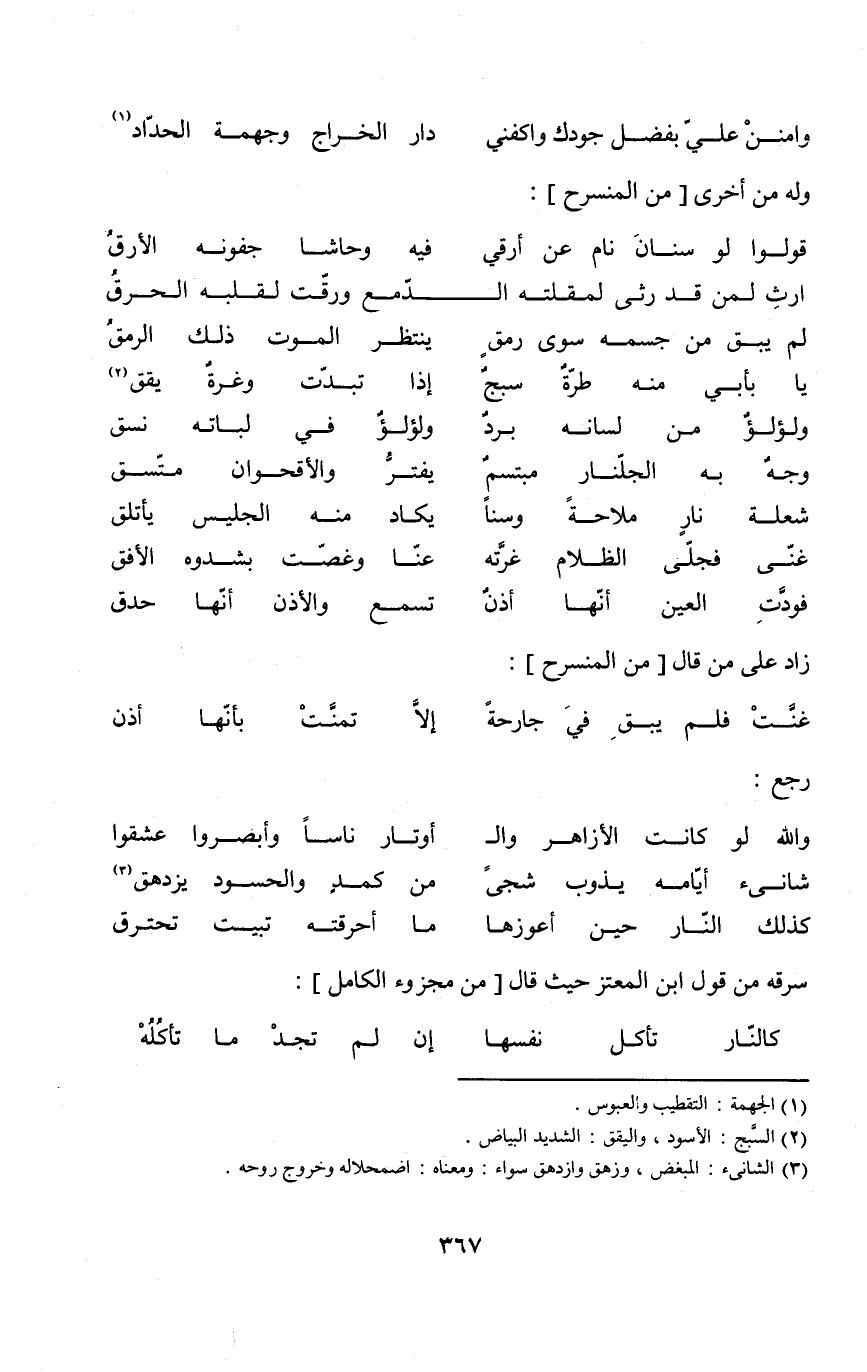 وامنـنْ علـيّ بفضـل جودك واكفني دار الخـراج وجهمـة الحدّاد(١)
وله من أخرى [ من المنسرح ] :
قولـوا لو سنـانَ نام عن أرقي فيه وحاشـا جفونـه الأرقُ
ارثِ لـمن قـد رثـى لمـقلتـه الـدّمـع ورقّـت لـقـلبـه الـحـرقُ
لم يبـق من جسمـه سوى رمقٍ ينتظـر المـوت ذلـك الرمقُ
يا بأبـي منـه طرّةٌ سبجٌ إذا تبـدّت وغرةٌ يقق(٢)
ولـؤلـؤٌ مـن لسانـه بـردٌ ولؤلـؤٌ فـي لبـاته نسق
وجـهٌ بـه الجلّنـار مبتسمٌ يفتـرُّ والأقحـوان متّسـق
شعلـة نارٍ ملاحـةً وسناً يكـاد منـه الجليـس يأتلق
غنّـى فجلّـى الظـلام غرَّته عنّـا وغصّـت بشـدوه الأفق
فودَّتِ العين أنّهـا أذنٌ تسمـع والأذن أنّهـا حدق
زاد على من قال [ من المنسرح ] :
غنَّـتْ فلـم يبـقِ فيَ جارحةً إلاَّ تمنَّـتْ بأنّهـا أذن
رجع :
والله لو كانـت الأزاهـر والـ أوتـار ناسـاً وأبصـروا عشقوا
شانـىء أيّامـه يـذوب شجىً من كمـدٍ والحسـود يزدهق(٣)
كذلك النّـار حيـن أعوزهـا مـا أحرقتـه تبيـت تحتـرق
سرقه من قول ابن المعتز حيث قال [ من مجزوء الكامل ] :
كالنّـار تأكـل نفسهـا إن لـم تجـدْ مـا تأكُلُهْ
(١) الجهمة : التقطيب والعبوس .
(٢) السَّبج : الأسود ، واليقق : الشديد البياض .
(٣) الشانىء : المبغض ، وزهق وازدهق سواء : ومعناه : اضمحلاله وخروج روحه .
٣٦٧